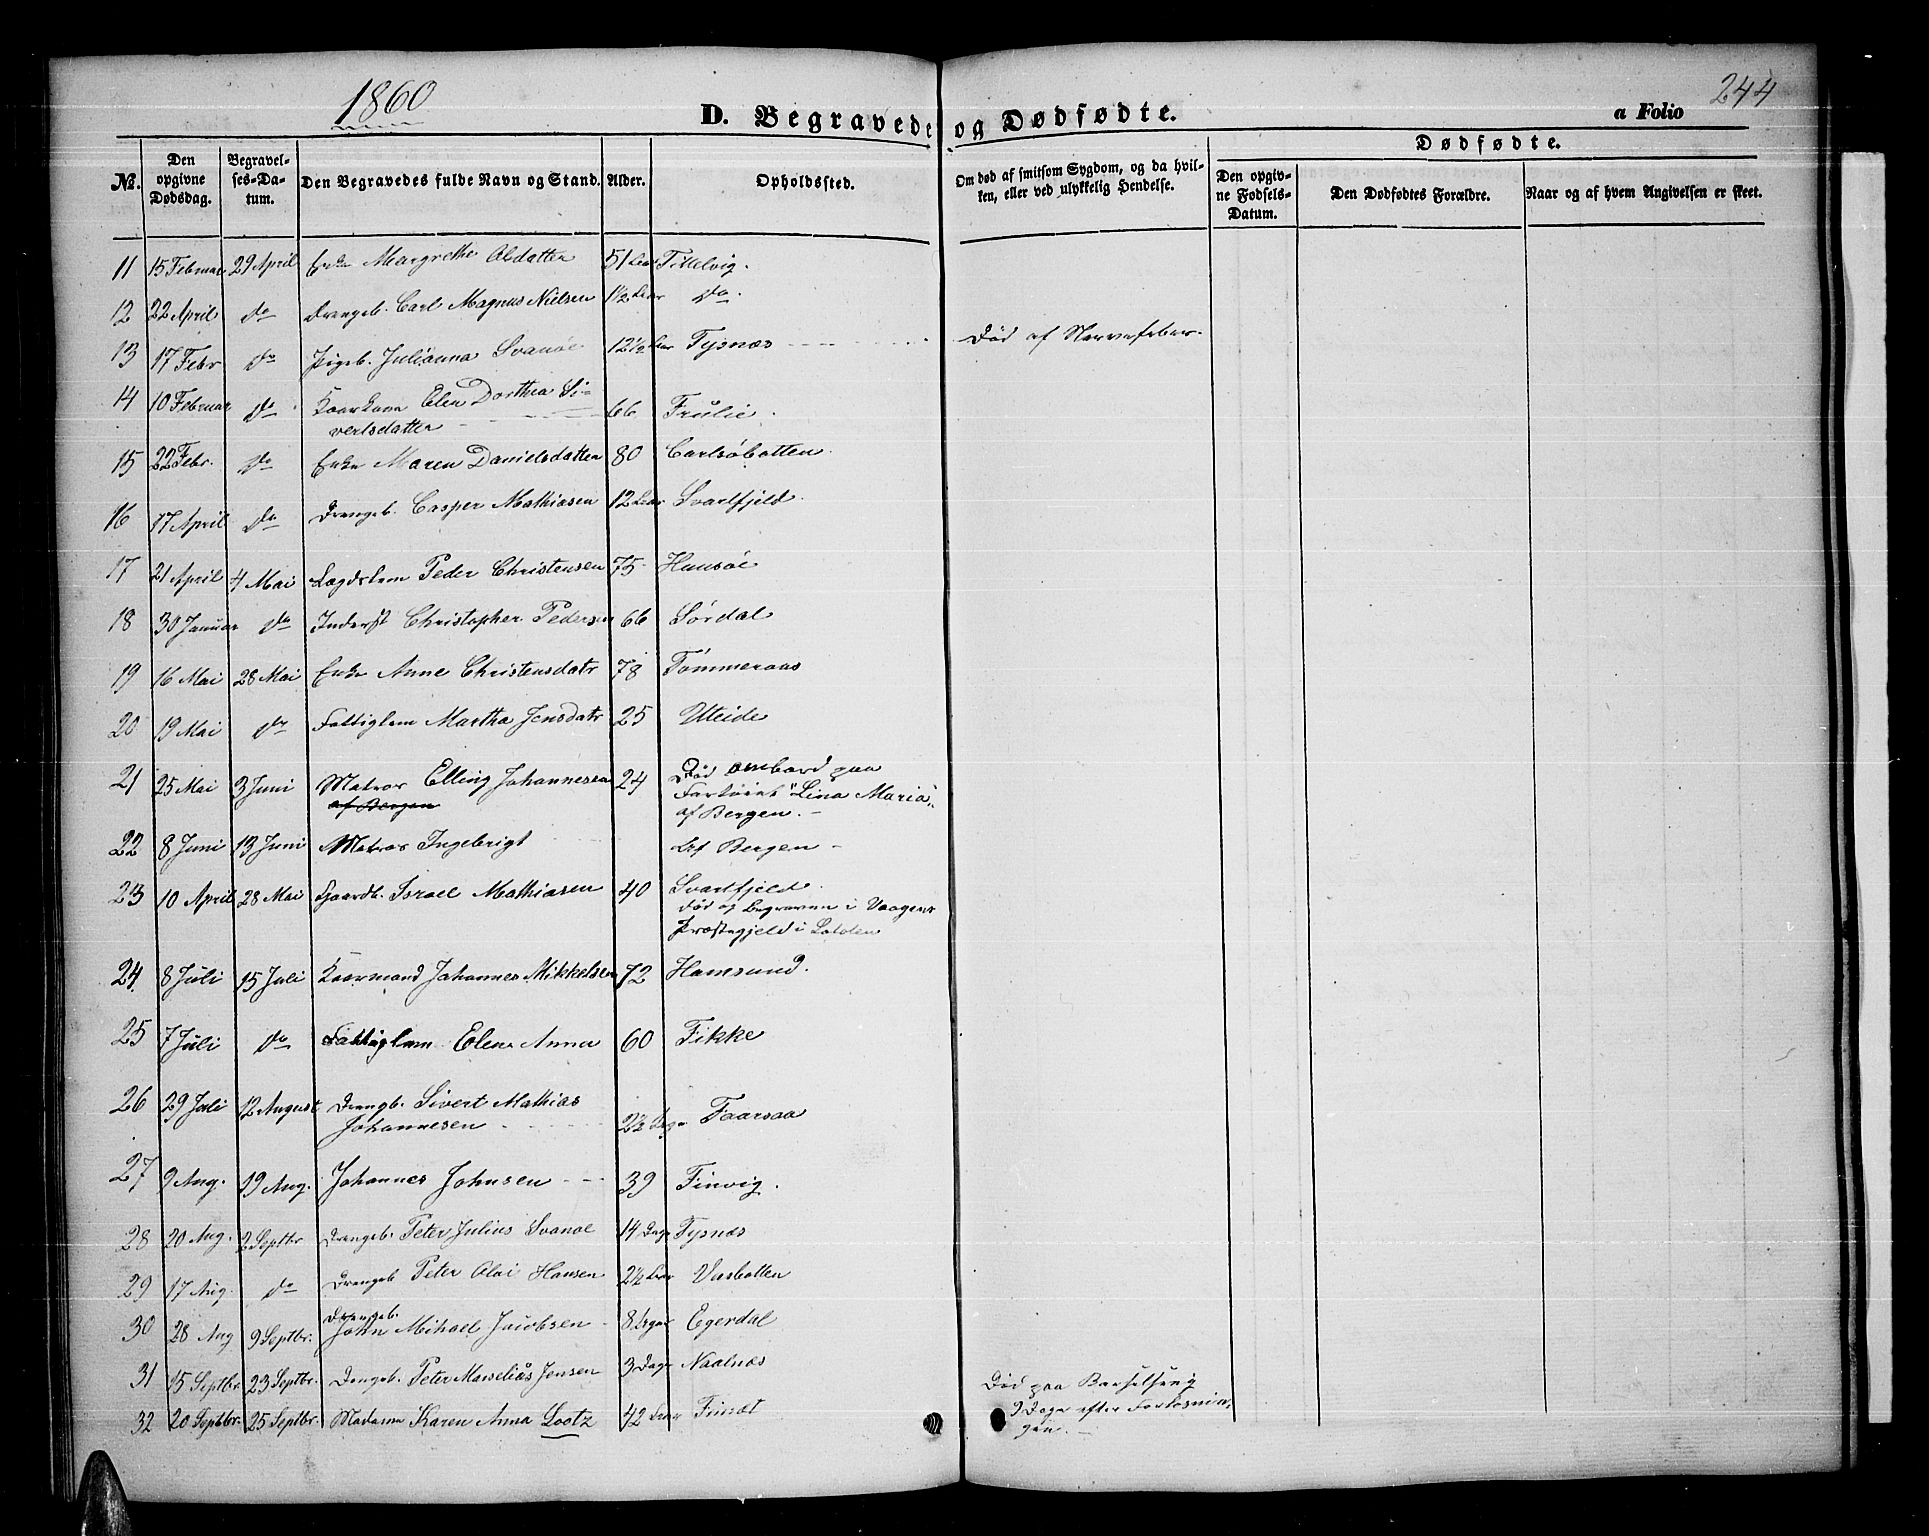 1860
244
D. Begravede og Dødfødte.
a Folio
No.
Den opgivne Dødsdag.
Begravelses-Datum.
Den Begravedes fulde Navn og Stand.
Alder.
Opholdssted.
Om død af smitsom Sygdom, og da hvilken, eller ved ulykkelig Hendelse.
Dødfødte.
Den opgivne Fødsels-Datum.
Den Dødfødtes Forældre.
Naar og af hvem Angivelsen er skeet.
11 15 Februar 29 April Enke Margrethe Olsdatter 51 Aar
12 22 April do Drengeb. Carl Magnus Nielsen 1½ Aar do.
13 17 Febr do Pigeb. Julianna Svanöe 12½ Aar Tysnæs Död af Nervefeber.
14 10 Februar do Kaarkone Elen Dorthea Si-
vertsdatter 66 Frulie.
15 22 Febr. do Enke Maren Danielsdatter 80 Carlsöbotten.
16 17 April do Drengeb. Casper Mathiasen 12 Aar Svartfjeld.
17 21 April 4 Mai Lægdslem Peder Christensen 75 Hansöe
18 30 Januar do Inderst Christopher Pedersen 66 Sördal
19 16 Mai 28 Mai Enke Anne Christensdatr 78 Tömmeraas
20 19 Mai do Fattiglem Martha Jensdatr 25 Uteide
21 25 Mai 3 Juni Matros Elling Johannesen 24 Död ombord paa
af Bergen Fartöiet "Lina Maria"
af Bergen. –
22 8 Juni 13 Juni Matros Ingebrigt Af Bergen –
23 10 April 28 Mai Gaardb. Israel Mathiasen 40 Svartfjeld.
död og begraven i Vaagens
Præstegjeld i Lofoten
24. 8 Juli 15 Juli Kaarmand Johannes Mikkelsen 72 Hamsund.
25 7 Juli do Fattiglem Elen Anna 60 Fikke
26 29 Juli 12 August Drengb. Sivert Mathias
Johannesen 2½ Faarsaa
27 9 Aug. 19 Aug. Johannes Johnsen 39 Finvig.
28 20 Aug. 2 Septbr Drengeb. Peter Julius Svanoe 14 Dage Tysnæs
29 17 Aug. do Drengeb Peter Olai Hansen 2½ Aar Vasbotten
30 28 Aug 9 Septbr. Drengeb.
John Mihael Jacobsen 8 Dage Egerdal
31 15 Septbr 23 Septbr. Drengeb. Peter Marselius Jensen 3 Dage Naalnæs
32 20 Septbr. 25 Septbr. Madame Karen Anna Lootz 42 Aar Död paa Barselseng
9 Dage efter Forlösnin-
gen. –